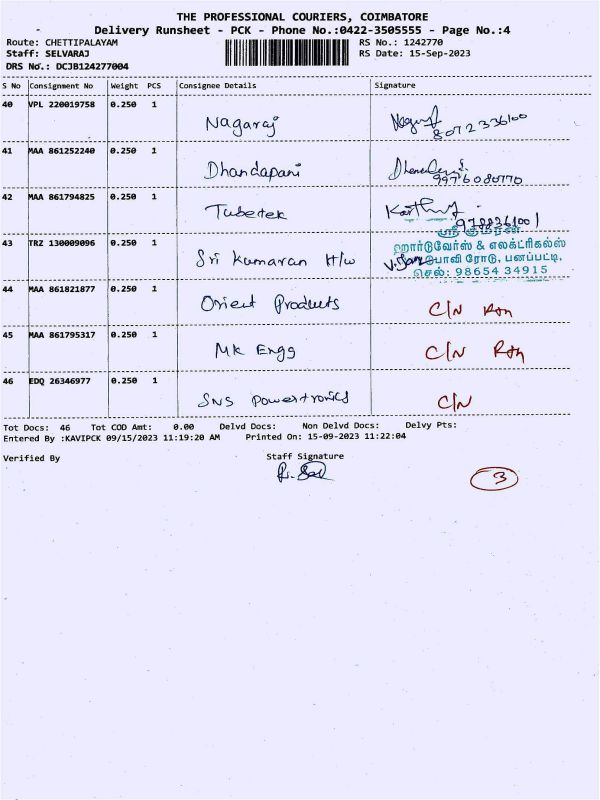 THE PROFESSIONAL COURIERS, COIMBATORE
Delivery Runsheet - PCK - Phone No.:0422-3505555 - Page No.:4
Route: CHETTIPALAYAM RS No.: 1242770
Staff: SELVARAJ RS Date: 15-Sep-2023
DRS No.: DCJB124277004
S No Consignment No Weight PCS Consignee Details Signature
40 VPL 220019758 0.250 1 Nagaraj
8072336100
41 MAA 861252240 0.250 1 Dhandapani
9976080770
42 MAA 861794825 0.250 1 Tubetek
ஸ்ரீ குமரன்
43 TRZ 130009096 0.250 1 Sri Kumaran H/w ஹார்டுவேர்ஸ் & எலக்ட்ரிகல்ஸ்
ரோடு, பனப்பட்டி,
செல்: 98654 34915
44 MAA 861821877 0.250 1 Orient Products C/N Rtn
45 MAA 861795317 0.250 1 MK Engg C/N Rtn
46 EDQ 26346977 0.250 1 SNS Powertronics C/N
Tot Docs: 46 Tot COD Amt: 0.00 Delvd Docs: Non Delvd Docs: Delvy Pts:
Entered By :KAVIPCK 09/15/2023 11:19:20 AM Printed On: 15-09-2023 11:22:04
Verified By Staff Signature
3